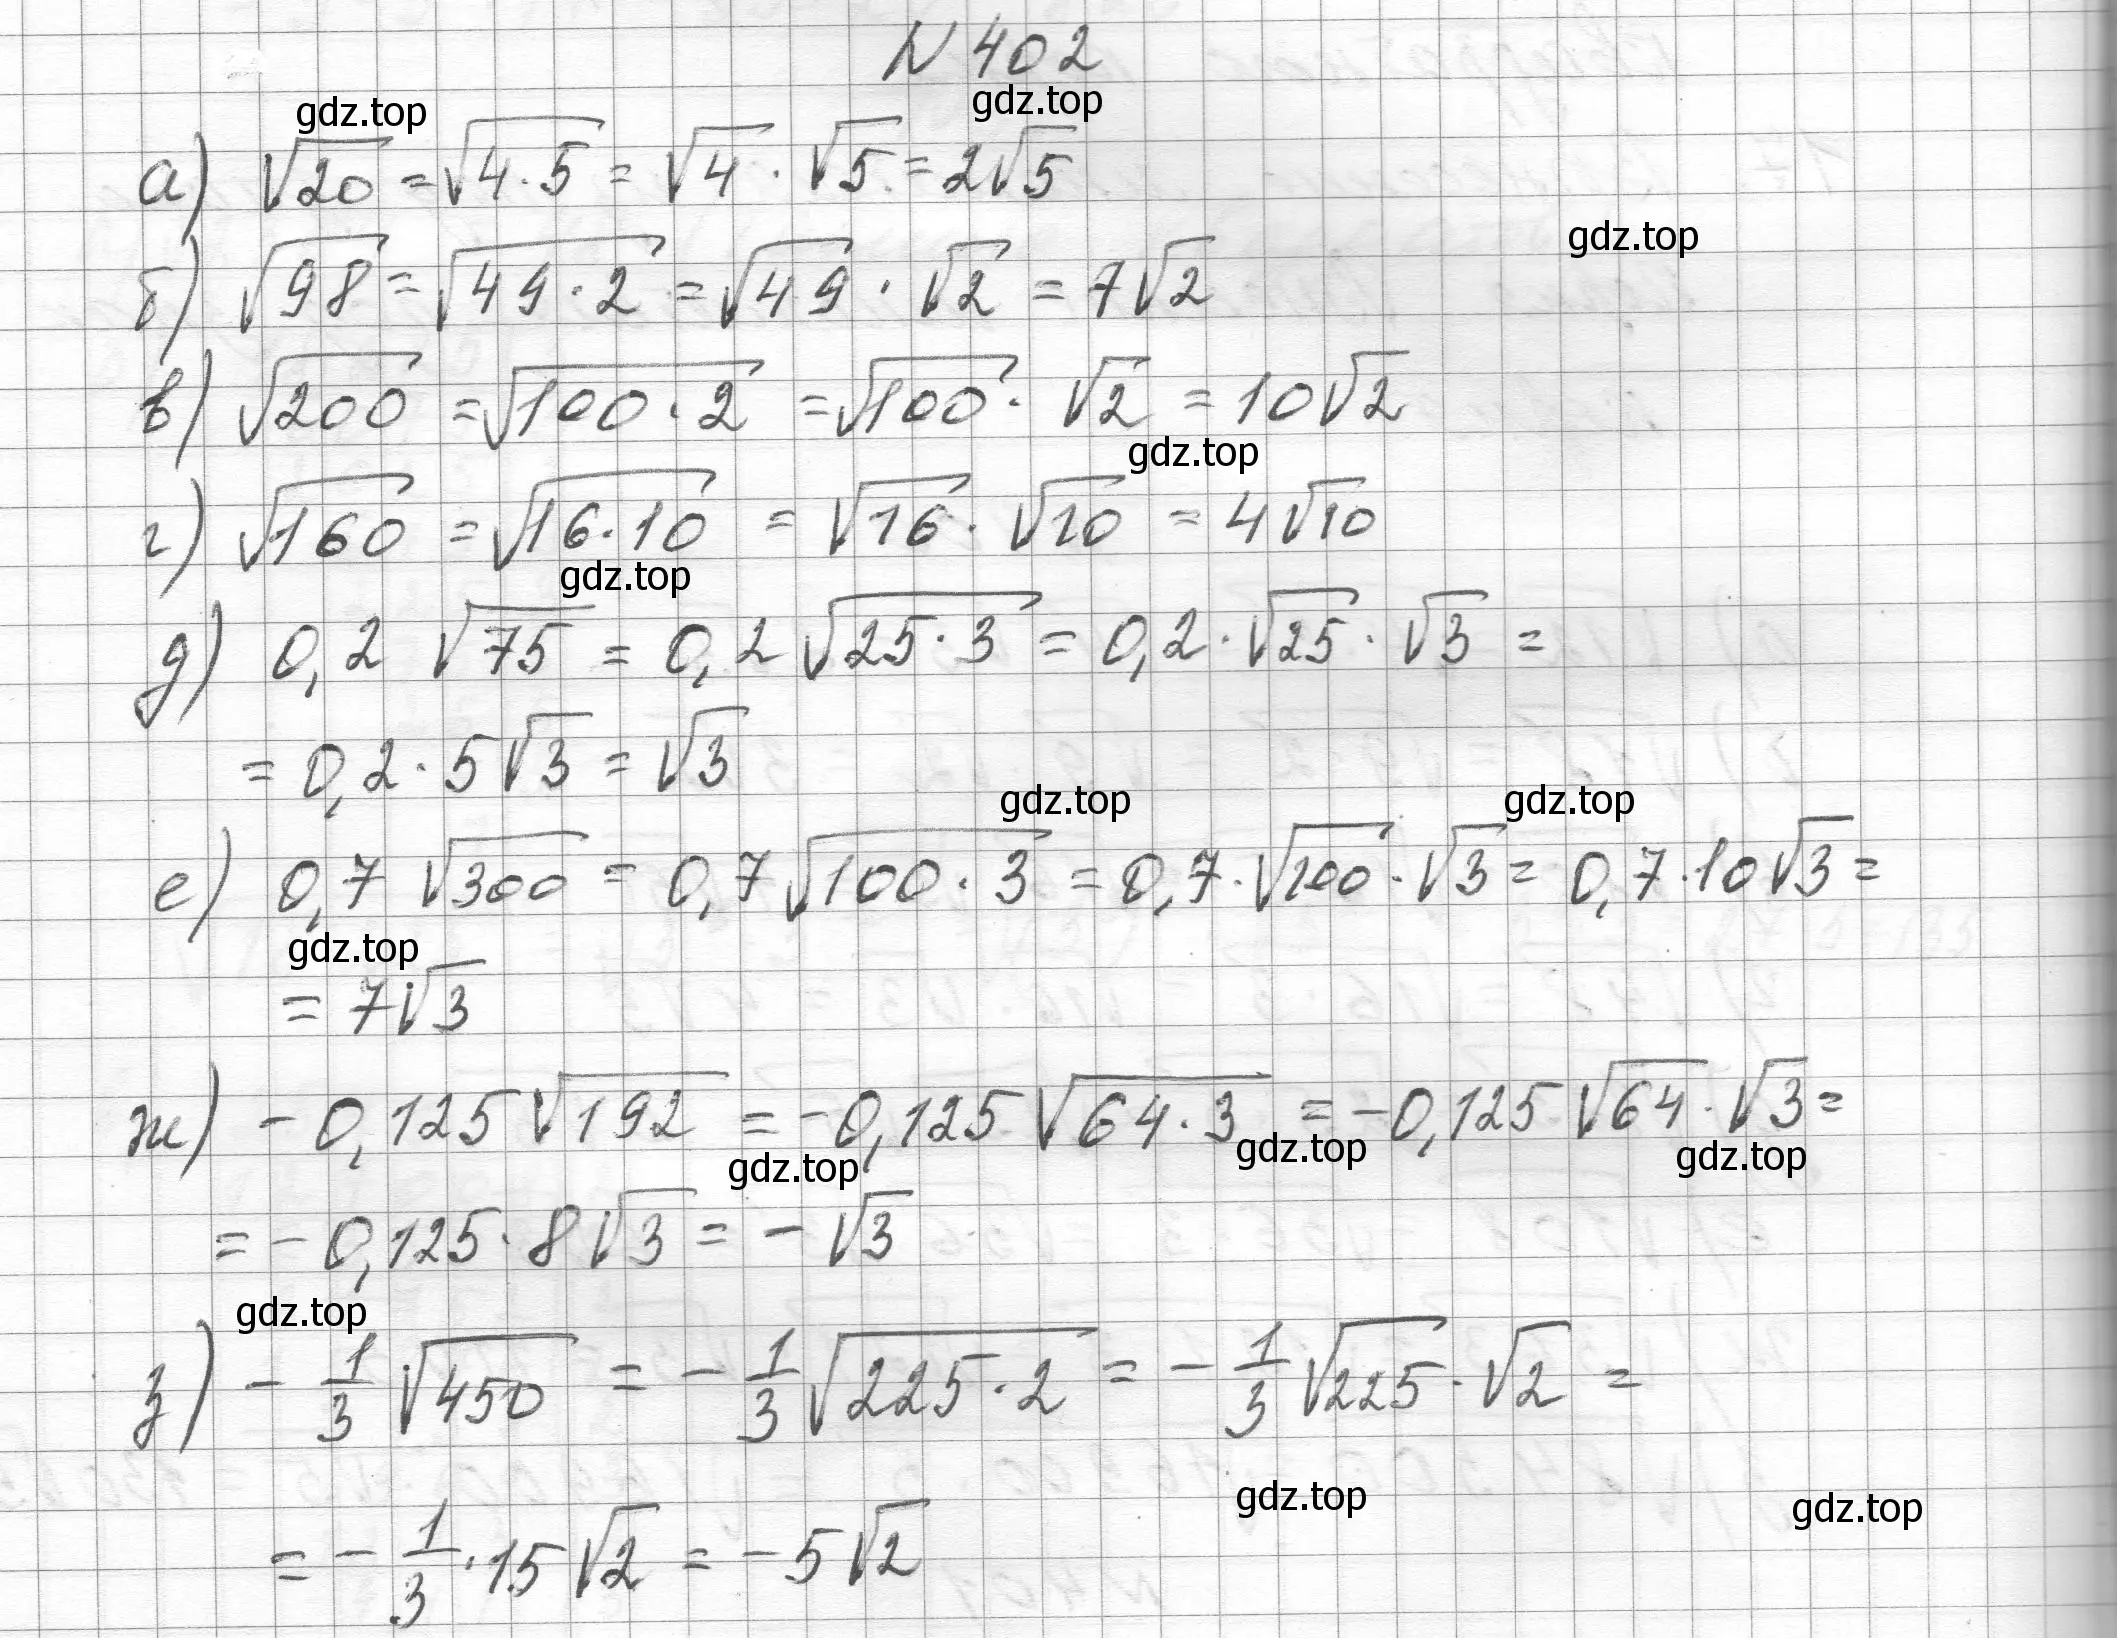 N 402
gdz.top gdz.top
а) √20 = √4·5 = √4 · √5 = 2√5
gdz.top
б) √98 = √49·2 = √49 · √2 = 7√2
в) √200 = √100·2 = √100 · √2 = 10√2
gdz.top
г) √160 = √16·10 = √16 · √10 = 4√10
gdz.top
д) 0,2 √75 = 0,2 √25·3 = 0,2 · √25 · √3 =
= 0,2 · 5√3 = √3
gdz.top gdz.top
е) 0,7 √300 = 0,7 √100·3 = 0,7 · √100 · √3 = 0,7 · 10√3 =
gdz.top
= 7√3
ж) -0,125√192 = -0,125√64·3 = -0,125√64 · √3 =
gdz.top gdz.top gdz.top
= -0,125 · 8√3 = -√3
gdz.top
з) -1/3 √450 = -1/3 √225·2 = -1/3 √225 · √2 =
gdz.top gdz.top
= -1/3 · 15√2 = -5√2